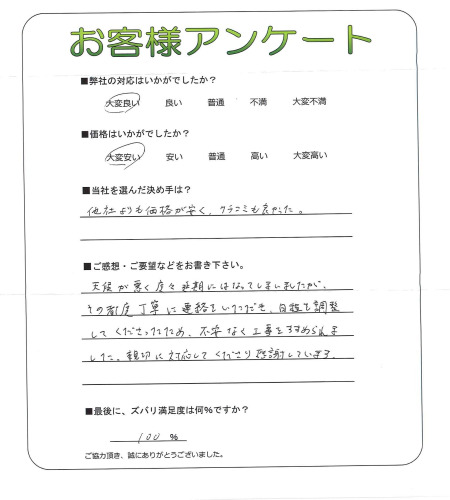 お客様アンケート
■弊社の対応はいかがでしたか？
大変良い 良い 普通 不満 大変不満
■価格はいかがでしたか？
大変安い 安い 普通 高い 大変高い
■当社を選んだ決め手は？
他社よりも価格が安く、クチコミも良かった。
■ご感想・ご要望などをお書き下さい。
天候が悪く度々延期にはなってしまいましたが、
その都度丁寧に連絡をいただき、日程を調整
してくださったため、不安なく工事をすすめられま
した。親切に対応してくださり感謝しています。
■最後に、ズバリ満足度は何％ですか？
100 ％
ご協力頂き、誠にありがとうございました。